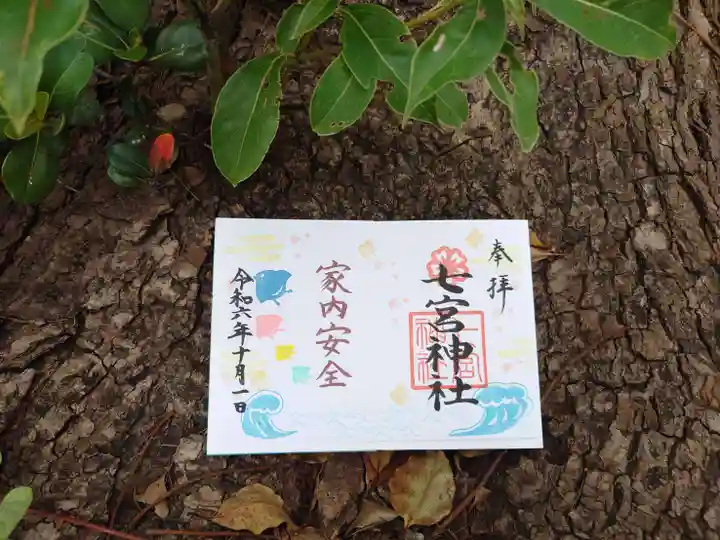 奉拝
七宮神社
七宮神社
家内安全
令和六年十月一日